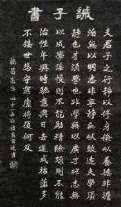 誡子書
夫君子之行靜以修身儉以養德非澹
泊無以明志非寧靜無以致遠夫學須
靜也才須學也非學無以廣才非志無
以成學慢則不能勵精險躁則不能
治性年與時馳意與日去遂成枯落多
不接世悲守窮廬將復何及